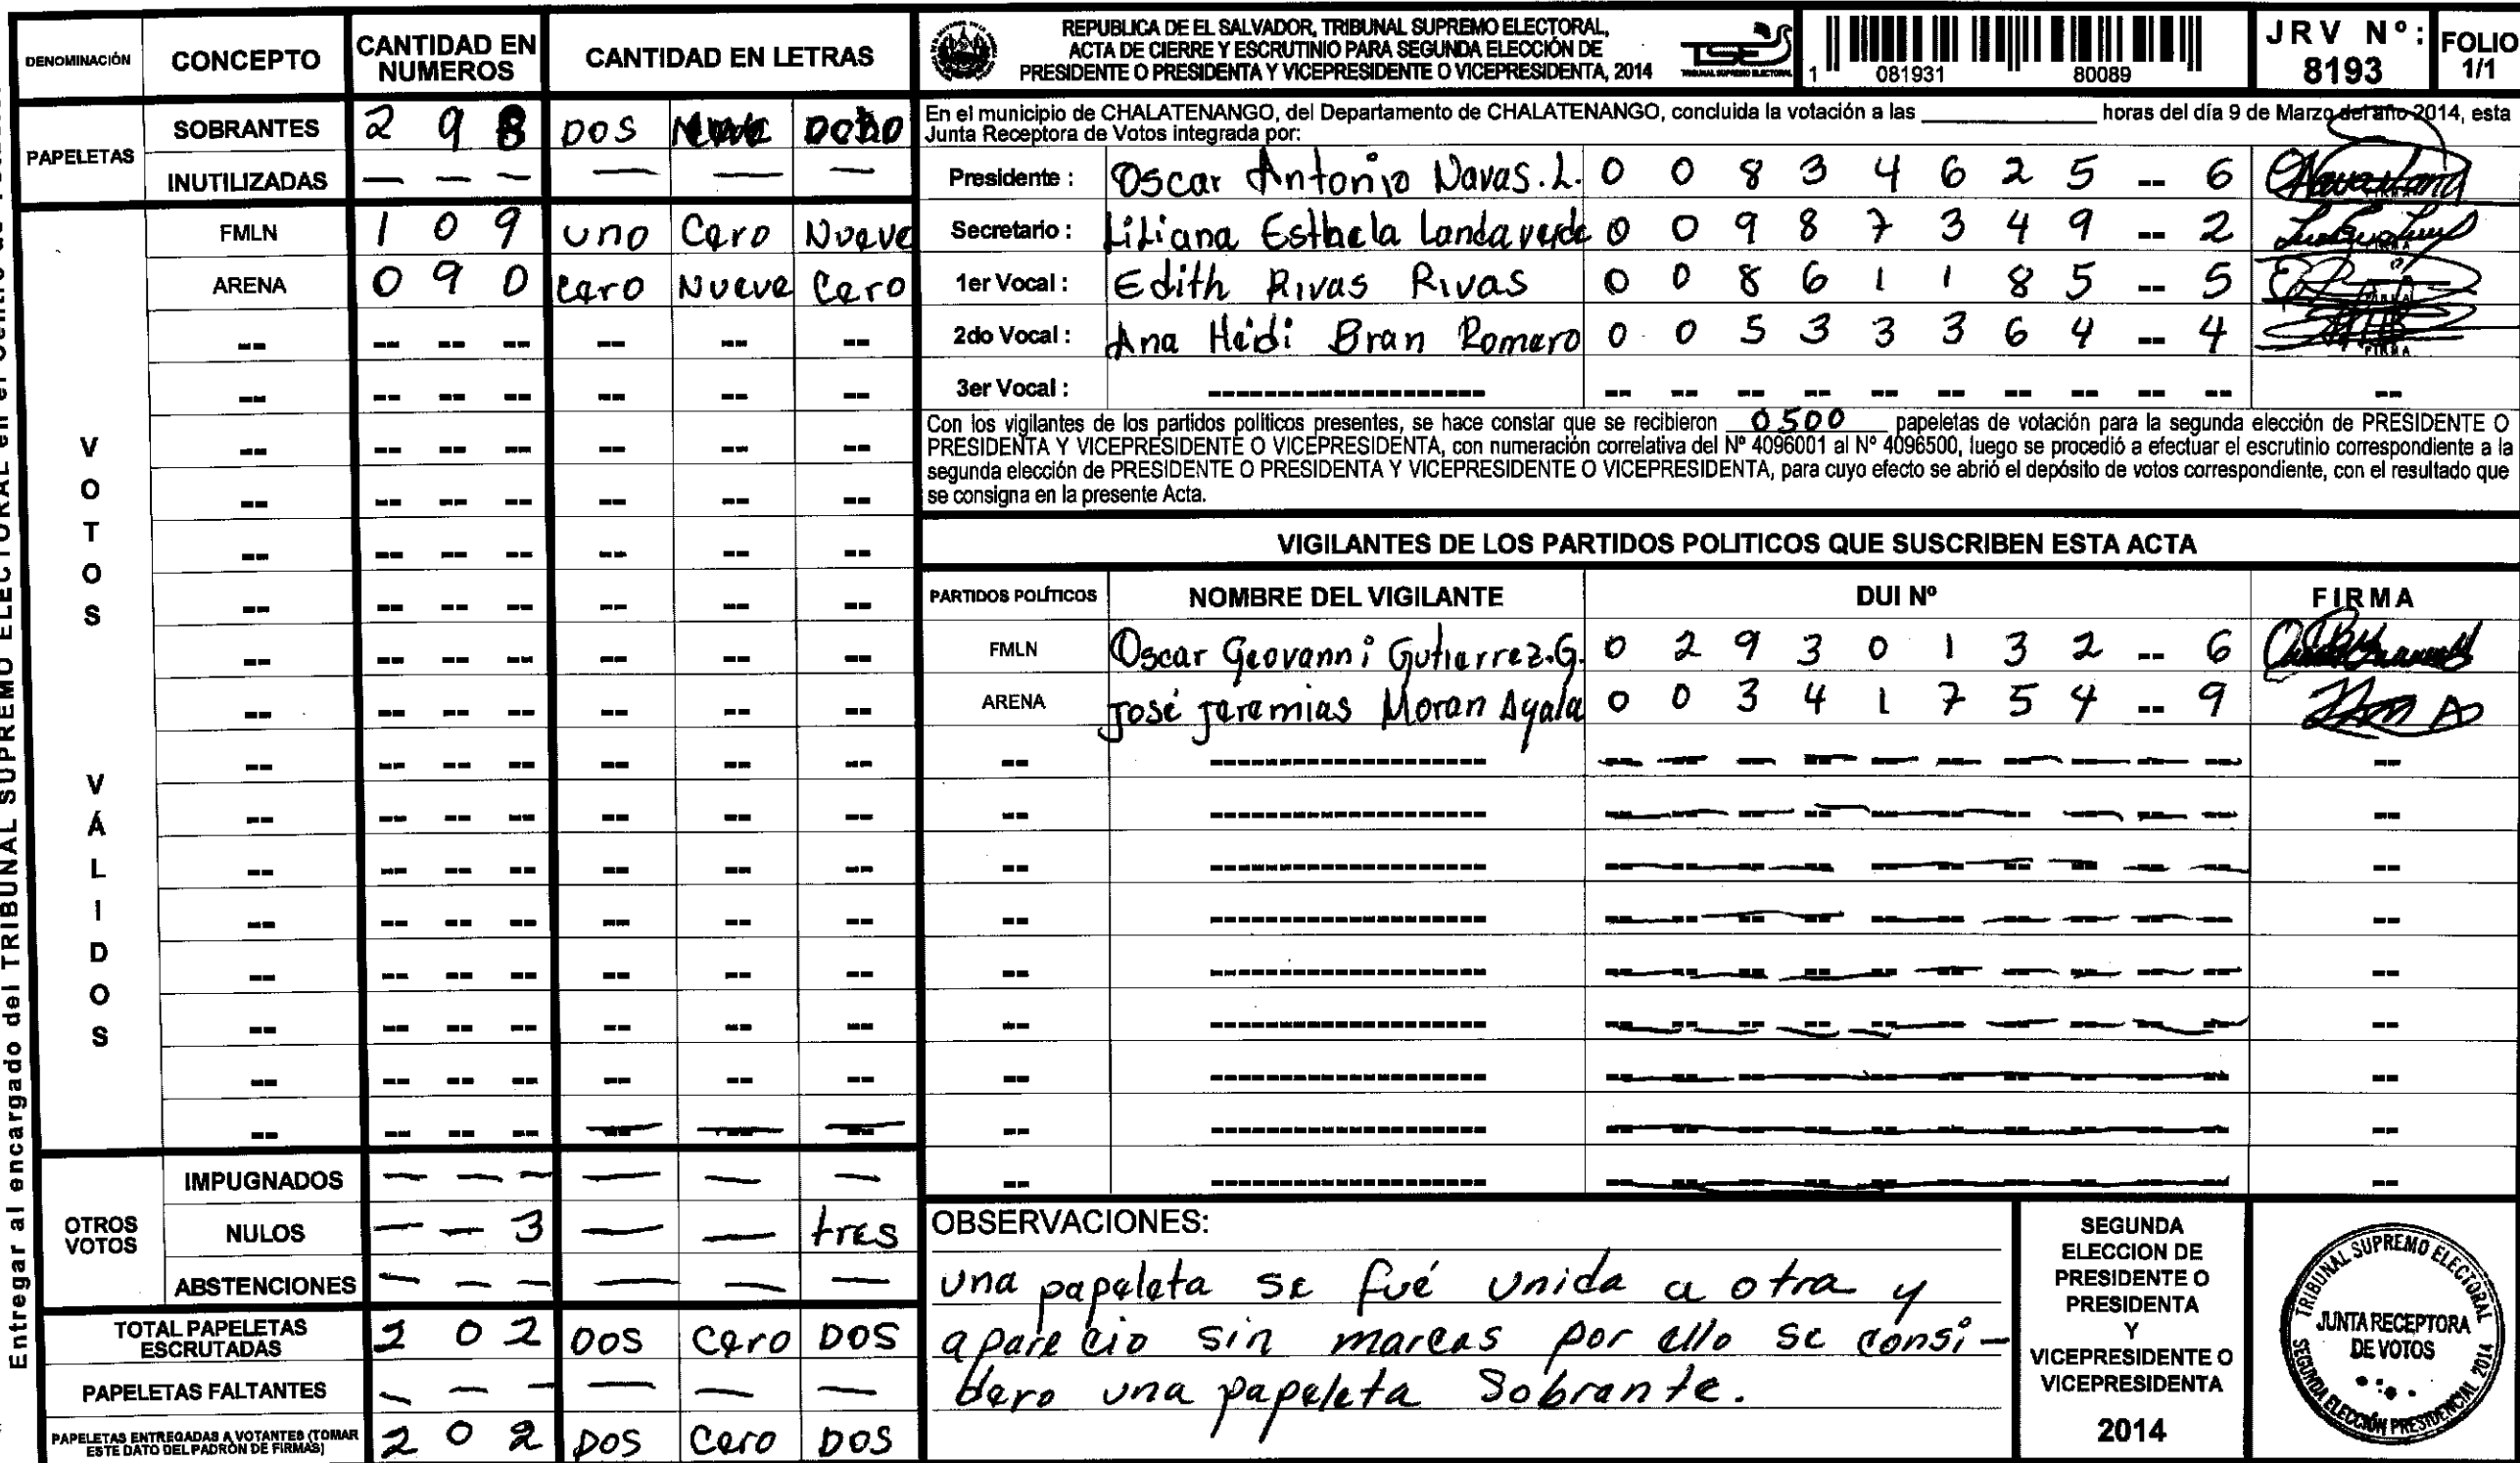 Entregar al encargado del TRIBUNAL SUPREMO ELECTORAL en el
DENOMINACIÓN CONCEPTO CANTIDAD EN NUMEROS CANTIDAD EN LETRAS
PAPELETAS
SOBRANTES 2 9 8 DOS
INUTILIZADAS — — — — — —
VOTOS VÁLIDOS
FMLN 1 0 9 uno Cero Nueve
ARENA 0 9 0 cero Nueve Cero
OTROS VOTOS
IMPUGNADOS — — — — — —
NULOS — — 3 — — tres
ABSTENCIONES — — — — — —
TOTAL PAPELETAS ESCRUTADAS 2 0 2 DOS Cero DOS
PAPELETAS FALTANTES — — — — — —
PAPELETAS ENTREGADAS A VOTANTES (TOMAR ESTE DATO DEL PADRÓN DE FIRMAS) 2 0 2 DOS Cero DOS
REPUBLICA DE EL SALVADOR, TRIBUNAL SUPREMO ELECTORAL,
ACTA DE CIERRE Y ESCRUTINIO PARA SEGUNDA ELECCIÓN DE
PRESIDENTE O PRESIDENTA Y VICEPRESIDENTE O VICEPRESIDENTA, 2014
TSE
TRIBUNAL SUPREMO ELECTORAL
1 081931 80089
JRV Nº: 8193
FOLIO 1/1
En el municipio de CHALATENANGO, del Departamento de CHALATENANGO, concluida la votación a las ____ horas del día 9 de Marzo del año 2014, esta
Junta Receptora de Votos integrada por:
Presidente : Oscar Antonio Navas. L. 0 0 8 3 4 6 2 5 -- 6
Secretario : Liliana Esthela Landaverde 0 0 9 8 7 3 4 9 -- 2
1er Vocal : Edith Rivas Rivas 0 0 8 6 1 1 8 5 -- 5
2do Vocal : Ana Heidi Bran Romero 0 0 5 3 3 3 6 4 -- 4
FIRMA
3er Vocal :
Con los vigilantes de los partidos políticos presentes, se hace constar que se recibieron 0500 papeletas de votación para la segunda elección de PRESIDENTE O
PRESIDENTA Y VICEPRESIDENTE O VICEPRESIDENTA, con numeración correlativa del Nº 4096001 al Nº 4096500, luego se procedió a efectuar el escrutinio correspondiente a la
segunda elección de PRESIDENTE O PRESIDENTA Y VICEPRESIDENTE O VICEPRESIDENTA, para cuyo efecto se abrió el depósito de votos correspondiente, con el resultado que
se consigna en la presente Acta.
VIGILANTES DE LOS PARTIDOS POLITICOS QUE SUSCRIBEN ESTA ACTA
PARTIDOS POLÍTICOS NOMBRE DEL VIGILANTE DUI Nº FIRMA
FMLN Oscar Geovanni Gutierrez.G. 0 2 9 3 0 1 3 2 -- 6
ARENA José Jeremias Moran Ayala 0 0 3 4 1 7 5 4 -- 9
OBSERVACIONES:
una papeleta se fué unida a otra y
aparecio sin marcas por ello se consi-
dero una papeleta Sobrante.
SEGUNDA
ELECCION DE
PRESIDENTE O
PRESIDENTA
Y
VICEPRESIDENTE O
VICEPRESIDENTA
2014
TRIBUNAL SUPREMO ELECTORAL
JUNTA RECEPTORA
DE VOTOS
SEGUNDA ELECCIÓN PRESIDENCIAL 2014